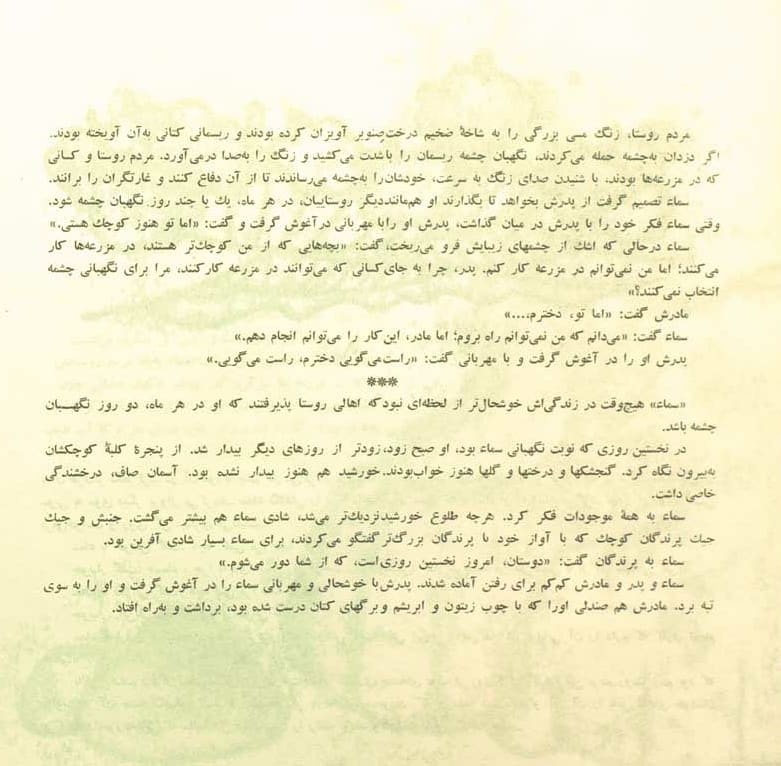 مردم روستا، زنگ مسی بزرگی را به شاخهٔ ضخیم درخت‌صنوبر آویزان کرده بودند و ریسمانی کتانی به‌آن آویخته بودند.
اگر دزدان به‌چشمه حمله می‌کردند، نگهبان چشمه ریسمان را باشدت می‌کشید و زنگ را به‌صدا درمی‌آورد. مردم روستا و کسانی
که در مزرعه‌ها بودند، با شنیدن صدای زنگ به سرعت، خودشان‌را به‌چشمه می‌رساندند تا از آن دفاع کنند و غارتگران را برانند.
سماء تصمیم گرفت از پدرش بخواهد تا بگذارند او هم‌ماننددیگر روستاییان، در هر ماه، یك یا چند روز نگهبان چشمه شود.
وقتی سماء فکر خود را با پدرش در میان گذاشت، پدرش او رابا مهربانی درآغوش گرفت و گفت: «اما تو هنوز کوچك هستی.»
سماء درحالی که اشك از چشمهای زیبایش فرو می‌ریخت، گفت: «بچه‌هایی که از من کوچك‌تر هستند، در مزرعه‌ها کار
می‌کنند؛ اما من نمی‌توانم در مزرعه کار کنم. پدر، چرا به جای‌کسانی که می‌توانند در مزرعه کارکنند، مرا برای نگهبانی چشمه
انتخاب نمی‌کنند؟»
مادرش گفت: «اما تو، دخترم،...»
سماء گفت: «می‌دانم که من نمی‌توانم راه بروم؛ اما مادر، این‌کار را می‌توانم انجام دهم.»
پدرش او را در آغوش گرفت و با مهربانی گفت: «راست‌می‌گویی دخترم، راست می‌گویی.»
***
«سماء» هیچ‌وقت در زندگی‌اش خوشحال‌تر از لحظه‌ای نبودکه اهالی روستا پذیرفتند که او در هر ماه، دو روز نگهبان
چشمه باشد.
در نخستین روزی که نوبت نگهبانی سماء بود، او صبح زود، زودتر از روزهای دیگر بیدار شد. از پنجرهٔ کلبهٔ کوچکشان
به‌بیرون نگاه کرد. گنجشکها و درختها و گلها هنوز خواب‌بودند. خورشید هم هنوز بیدار نشده بود. آسمان صاف، درخشندگی
خاصی داشت.
سماء به همهٔ موجودات فکر کرد. هرچه طلوع خورشیدنزدیك‌تر می‌شد، شادی سماء هم بیشتر می‌گشت. جنبش و جیك
جیك پرندگان کوچك که با آواز خود با پرندگان بزرگ‌ترگفتگو می‌کردند، برای سماء بسیار شادی آفرین بود.
سماء به پرندگان گفت: «دوستان، امروز نخستین روزی‌است، که از شما دور می‌شوم.»
سماء و پدر و مادرش کم‌کم برای رفتن آماده شدند. پدرش‌با خوشحالی و مهربانی سماء را در آغوش گرفت و او را به سوی
تپه برد. مادرش هم صندلی اورا که با چوب زیتون و ابریشم وبرگهای کتان درست شده بود، برداشت و به‌راه افتاد.